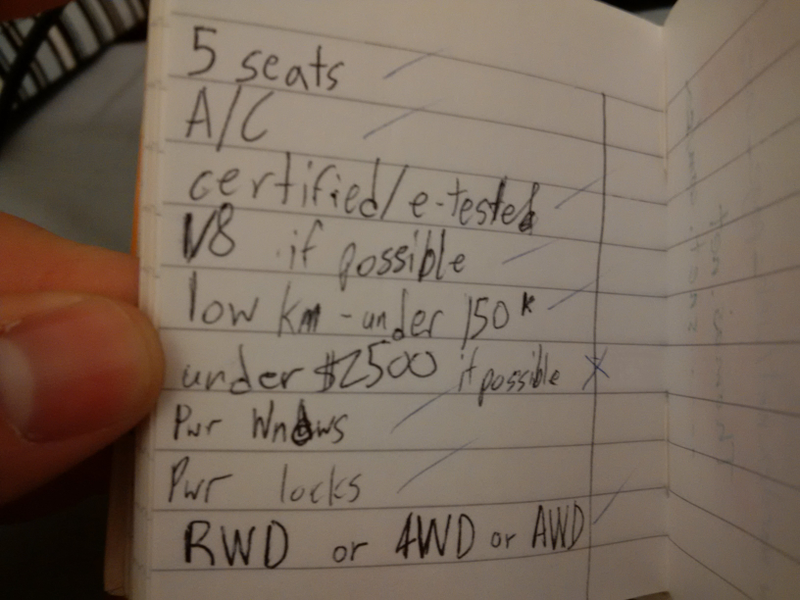 5 seats
A/C
certified/e-tested
V8 if possible
low km - under 150k
under $2500 if possible X
Pwr Wndws
Pwr locks
RWD or 4WD or AWD